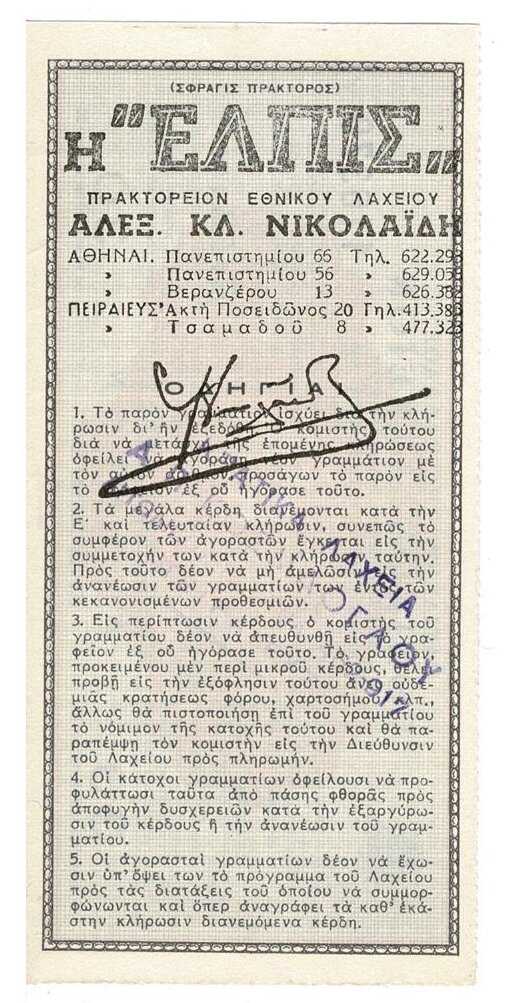 (ΣΦΡΑΓΙΣ ΠΡΑΚΤΟΡΟΣ)
Η "ΕΛΠΙΣ„
ΠΡΑΚΤΟΡΕΙΟΝ ΕΘΝΙΚΟΥ ΛΑΧΕΙΟΥ
ΑΛΕΞ. ΚΛ. ΝΙΚΟΛΑΪΔΗ
ΑΘΗΝΑΙ. Πανεπιστημίου 66 Τηλ. 622.293
» Πανεπιστημίου 56 » 629.058
» Βερανζέρου 13 » 626.382
ΠΕΙΡΑΙΕΥΣ Ἀκτή Ποσειδῶνος 20 Τηλ. 413.383
» Τσαμαδοῦ 8 » 477.323
ΟΔΗΓΙΑΙ
1. Τὸ παρὸν γραμμάτιον ἰσχύει διὰ τὴν κλή-
ρωσιν δι' ἣν ἐξεδόθη. Ὁ κομιστὴς τούτου
διὰ νὰ μετάσχῃ τῆς ἑπομένης κληρώσεως
ὀφείλει νὰ ἀγοράσῃ νέον γραμμάτιον μὲ
τὸν αὐτὸν προσάγων τὸ παρὸν εἰς
τὸ γραφεῖον ἐξ οὗ ἠγόρασε τοῦτο.
2. Τὰ μεγάλα κέρδη διανέμονται κατὰ τὴν
Ε' καὶ τελευταίαν κλήρωσιν, συνεπῶς τὸ
συμφέρον τῶν ἀγοραστῶν ἔγκειται εἰς τὴν
συμμετοχήν των κατὰ τὴν κλήρωσιν ταύτην.
Πρὸς τοῦτο δέον νὰ μὴ ἀμελῶσιν εἰς τὴν
ἀνανέωσιν τῶν γραμματίων των ἐντὸς τῶν
κεκανονισμένων προθεσμιῶν.
3. Εἰς περίπτωσιν κέρδους ὁ κομιστὴς τοῦ
γραμματίου δέον νὰ ἀπευθυνθῇ εἰς τὸ γρα-
φεῖον ἐξ οὗ ἠγόρασε τοῦτο. Τὸ γραφεῖον,
προκειμένου μὲν περὶ μικροῦ κέρδους, θέλει
προβῇ εἰς τὴν ἐξόφλησιν τούτου ἄνευ οὐδε-
μιᾶς κρατήσεως φόρου, χαρτοσήμου κλπ.,
ἄλλως θὰ πιστοποιήσῃ ἐπὶ τοῦ γραμματίου
τὸ νόμιμον τῆς κατοχῆς τούτου καὶ θὰ πα-
ραπέμψῃ τὸν κομιστὴν εἰς τὴν Διεύθυνσιν
τοῦ Λαχείου πρὸς πληρωμήν.
4. Οἱ κάτοχοι γραμματίων ὀφείλουσι νὰ προ-
φυλάττωσι ταῦτα ἀπὸ πάσης φθορᾶς πρὸς
ἀποφυγὴν δυσχερειῶν κατὰ τὴν ἐξαργύρω-
σιν τοῦ κέρδους ἢ τὴν ἀνανέωσιν τοῦ γραμ-
ματίου.
5. Οἱ ἀγορασταὶ γραμματίων δέον νὰ ἔχω-
σιν ὑπ' ὄψει των τὸ πρόγραμμα τοῦ Λαχείου
πρὸς τὰς διατάξεις τοῦ ὁποίου νὰ συμμορ-
φώνωνται καὶ ὅπερ ἀναγράφει τὰ καθ' ἑκά-
στην κλήρωσιν διανεμόμενα κέρδη.
ΛΑΧΕΙΑ